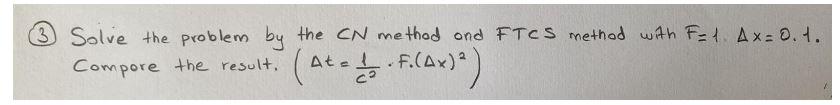 ③ Solve the problem by the CN method and FTCS method with F=1. Δx=0.1.
Compare the result. (Δt = 1/c² · F.(Δx)²)